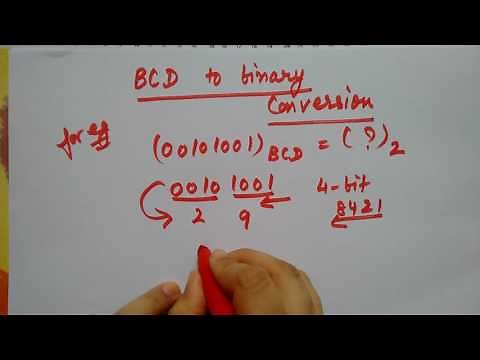 BCD to binary
Conversion
for eg (00101001)BCD = (?)2
0010 1001 4-bit
2 9 8421